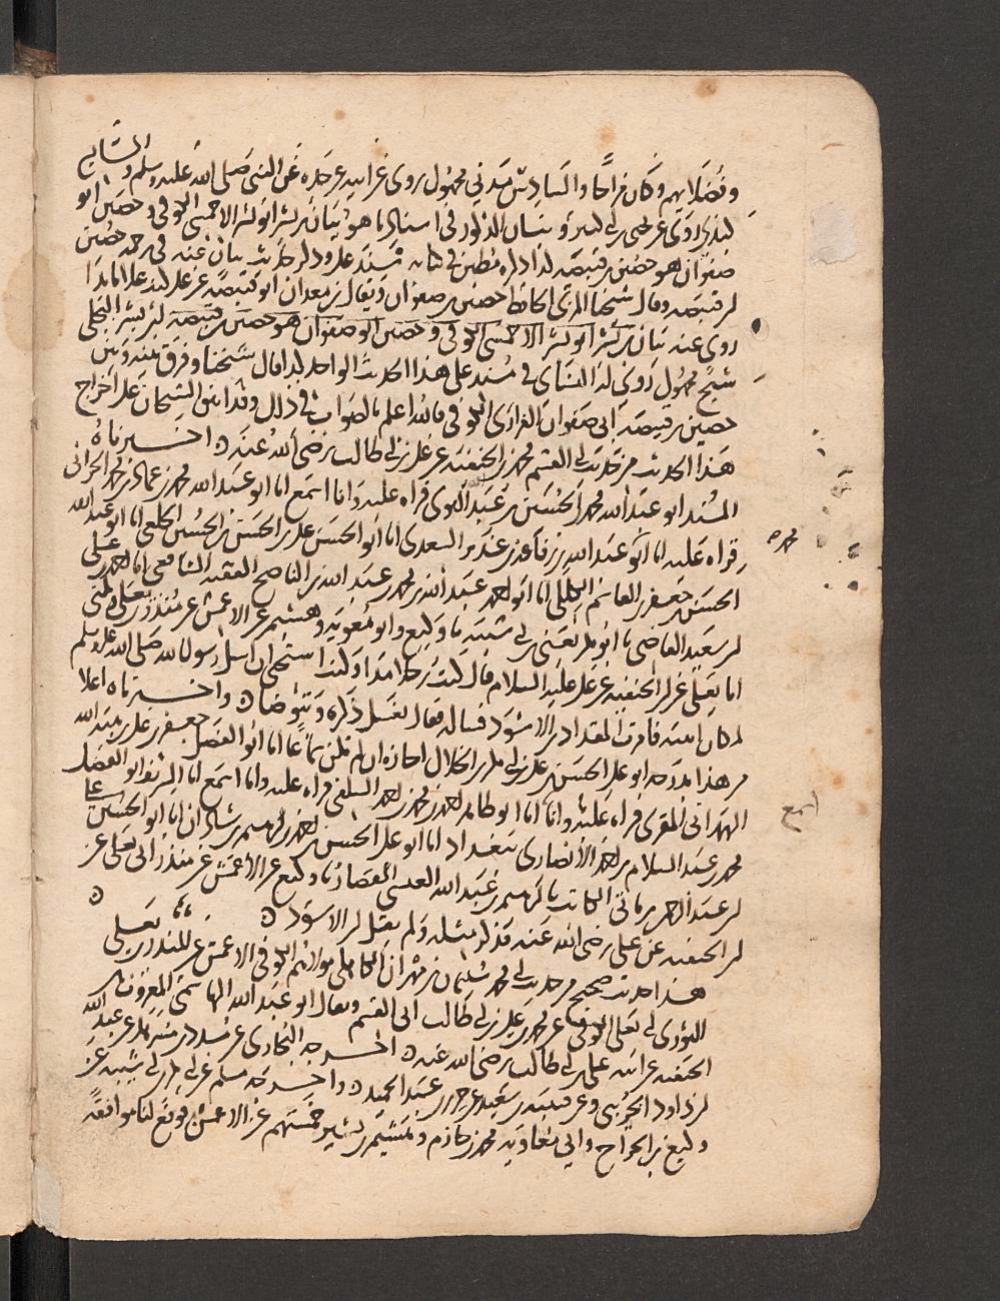 وفضلائهم وكان مزاحا والسادس مدني مجهول يروي عن ابيه عن جده عن النبي صلى الله عليه وسلم والسابع
روى عن بيان الذكور في اسنادنا هو بيان بن بشر ابو بشر الاحمسي الكوفي وحصين ابو
صفوان هو حصين بن قبيصة كذا ذكره مطين في كتابه مسند علي وذكر حديث بيان عنه في ترجمة حصين
بن قبيصة وقال شيخنا المزي الحافظ حصين بن صفوان ويقال بن معدان ابو قبيصة عن علي
روى عنه بيان بن بشر ابو بشر الاحمسي الكوفي وحصين ابو صفوان هو حصين بن قبيصة البجلي
شيخ مجهول روى له النسائي في مسند علي هذا الحديث الواحد كذا قال شيخنا وفرق بينه وبين
حصين بن قبيصة ابي صفوان الفزاري الكوفي فالله اعلم بالصواب في ذلك وقد اتفق الشيخان على اخراج
هذا الحديث من حديث ابي القسم محمد بن الحنفية عن علي بن ابي طالب رضي الله عنه ه اخبرناه
المسند ابو عبد الله محمد الحسين بن عبد الله قراه عليه وانا اسمع انا ابو عبد الله محمد بن عماد بن محمد الحراني
قراه عليه انا ابو عبد الله بن رفاعة بن غدير السعدي انا ابو الحسن علي بن الحسن بن الحسين الخلعي انا ابو عبد الله
محمد
الحسين بن جعفر انا ابو احمد عبد الله بن محمد عبد الله بن الناصح الفقيه الشافعي انا احمد بن علي
بن سعيد القاضي نا ابو بكر يعني بن ابي شيبة نا وكيع وابو معوية وهشيم عن الاعمش عن منذر بن يعلى
ابا يعلى عن بن الحنفية عن علي عليه السلام قال كنت رجلا مذاء وكنت استحي ان اسل رسول الله صلى الله عليه وسلم
لمكان ابنته فامرت المقداد بن الاسود فساله فقال يغسل ذكره ويتوضا ه واخبرناه اعلا
من هذا بدرجة ابو علي الحسن بن علي بن ابي بكر الخلال اجازة ان لم يكن سماعا انا ابو الفضل جعفر بن علي بن هبة الله
الهمداني المقري قراه عليه وانا انا ابو طاهر احمد بن محمد بن احمد السلفي قراه عليه وانا اسمع انا الشريف ابو الفضل
اسمع
محمد بن عبد السلام بن احمد الانصاري ببغداد انا ابو علي الحسن بن احمد بن ابراهيم بن شاذان انا ابو الحسين علي
بن عبد الرحمن بن ماتي الكاتب نا ابراهيم بن عبد الله العبسي القصار نا وكيع عن الاعمش عن منذر ابي يعلى عن
بن الحنفية عن علي رضي الله عنه فذكر مثله ولم يقل بن الاسود ه
هذا حديث صحيح من حديث ابي محمد سليمان بن مهران الكاهلي مولاهم الكوفي الاعمش عن المنذر بن يعلى
الثوري ابي يعلى الكوفي عن محمد بن علي بن ابي طالب ابي القسم ويقال ابو عبد الله الهاشمي المعروف بابن
الحنفية عن ابيه علي بن ابي طالب رضي الله عنه ه اخرجه البخاري عن مسدد بن مسرهد عن عبد الله
بن داود الخريبي وعن قتيبة بن سعيد عن جرير بن عبد الحميد ه واخرجه مسلم عن ابي بكر بن ابي شيبة عن
وكيع بن الجراح وابي معاوية محمد بن خازم وهشيم بن بشير خمستهم عن الاعمش فوقع لنا موافقة